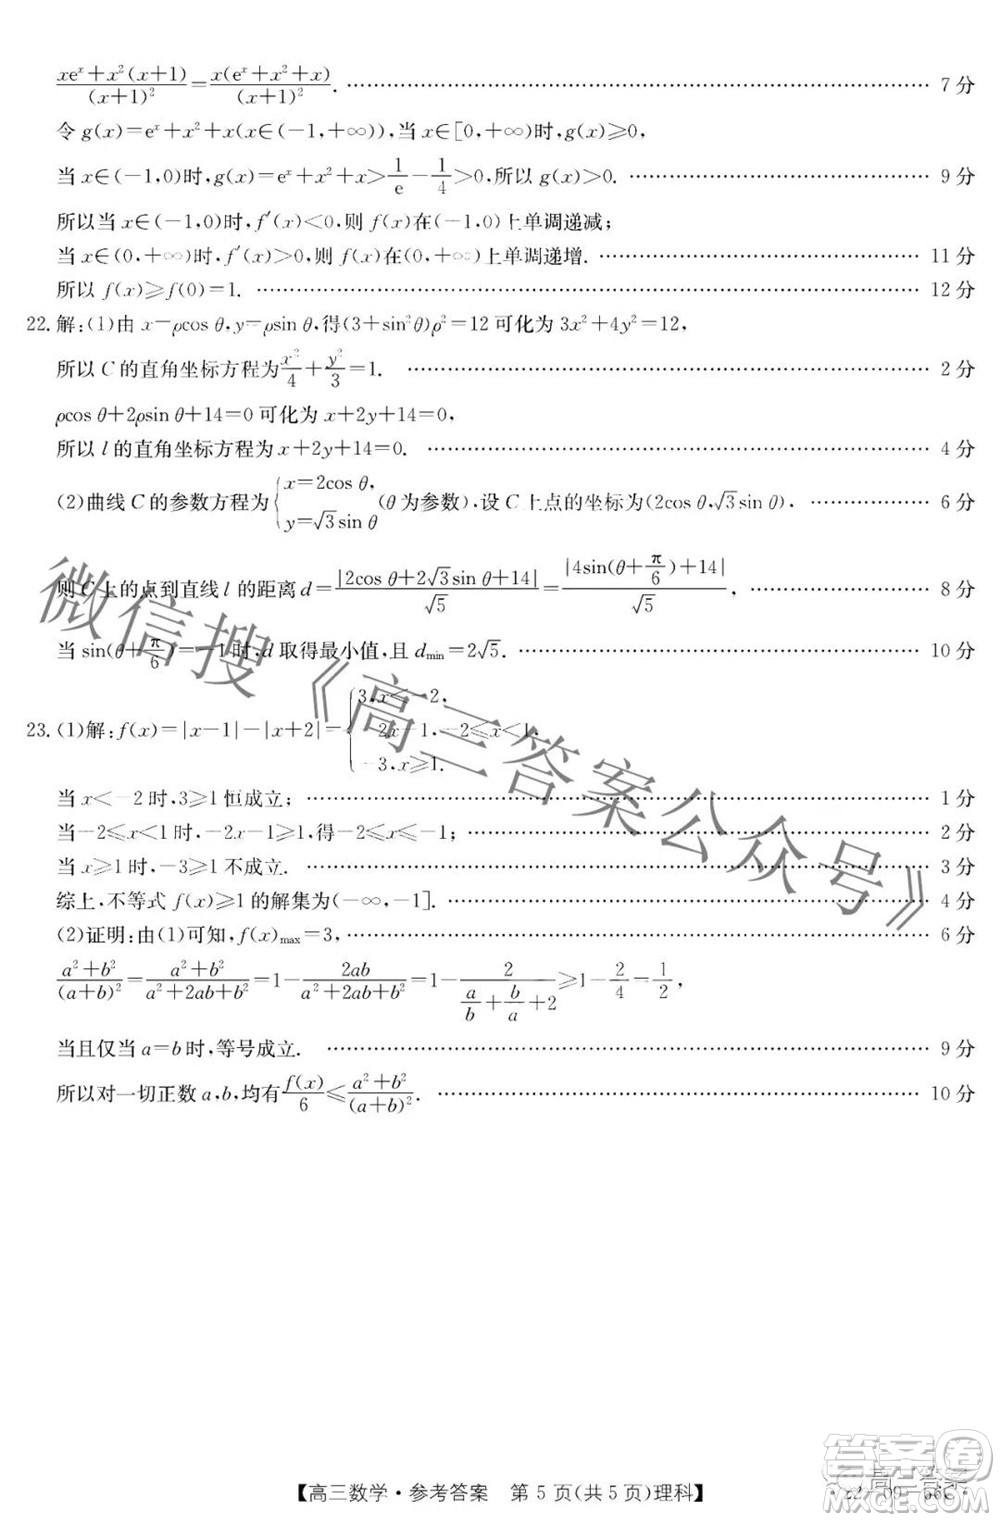 (xeˣ+x²(x+1))/(x+1)²=x(eˣ+x²+x)/(x+1)². …… 7 分
令 g(x)=eˣ+x²+x(x∈(-1,+∞)),当 x∈[0,+∞)时,g(x)≥0,
当 x∈(-1,0)时,g(x)=eˣ+x²+x>1/e-1/4>0,所以 g(x)>0. …… 9 分
所以当 x∈(-1,0)时,f′(x)<0,则 f(x)在(-1,0)上单调递减;
当 x∈(0,+∞)时,f′(x)>0,则 f(x)在(0,+∞)上单调递增. …… 11 分
所以 f(x)≥f(0)=1. …… 12 分
22.解:(1)由 x=ρcos θ,y=ρsin θ,得(3+sin²θ)ρ²=12 可化为 3x²+4y²=12,
所以 C 的直角坐标方程为x²/4+y²/3=1. …… 2 分
ρcos θ+2ρsin θ+14=0 可化为 x+2y+14=0,
所以 l 的直角坐标方程为 x+2y+14=0. …… 4 分
(2)曲线 C 的参数方程为{x=2cos θ, y=√3sin θ (θ为参数),设 C 上点的坐标为(2cos θ,√3sin θ), …… 6 分
则 C 上的点到直线 l 的距离 d=|2cos θ+2√3sin θ+14|/√5=|4sin(θ+π/6)+14|/√5, …… 8 分
当 sin(θ+π/6)=-1时,d 取得最小值,且 dmin=2√5. …… 10 分
23.(1)解:f(x)=|x-1|-|x+2|={3,x<-2, -2x-1,-2≤x<1, -3,x≥1.
当 x<-2 时,3≥1 恒成立; …… 1 分
当-2≤x<1 时,-2x-1≥1,得-2≤x≤-1; …… 2 分
当 x≥1 时,-3≥1 不成立. …… 3 分
综上,不等式 f(x)≥1 的解集为(-∞,-1]. …… 4 分
(2)证明:由(1)可知,f(x)max=3, …… 6 分
(a²+b²)/(a+b)²=(a²+b²)/(a²+2ab+b²)=1-2ab/(a²+2ab+b²)=1-2/(a/b+b/a+2)≥1-2/4=1/2,
当且仅当 a=b 时,等号成立. …… 9 分
所以对一切正数 a,b,均有f(x)/6≤(a²+b²)/(a+b)². …… 10 分
微信搜《高三答案公众号》
【高三数学·参考答案 第 5 页(共 5 页)理科】
答案圈